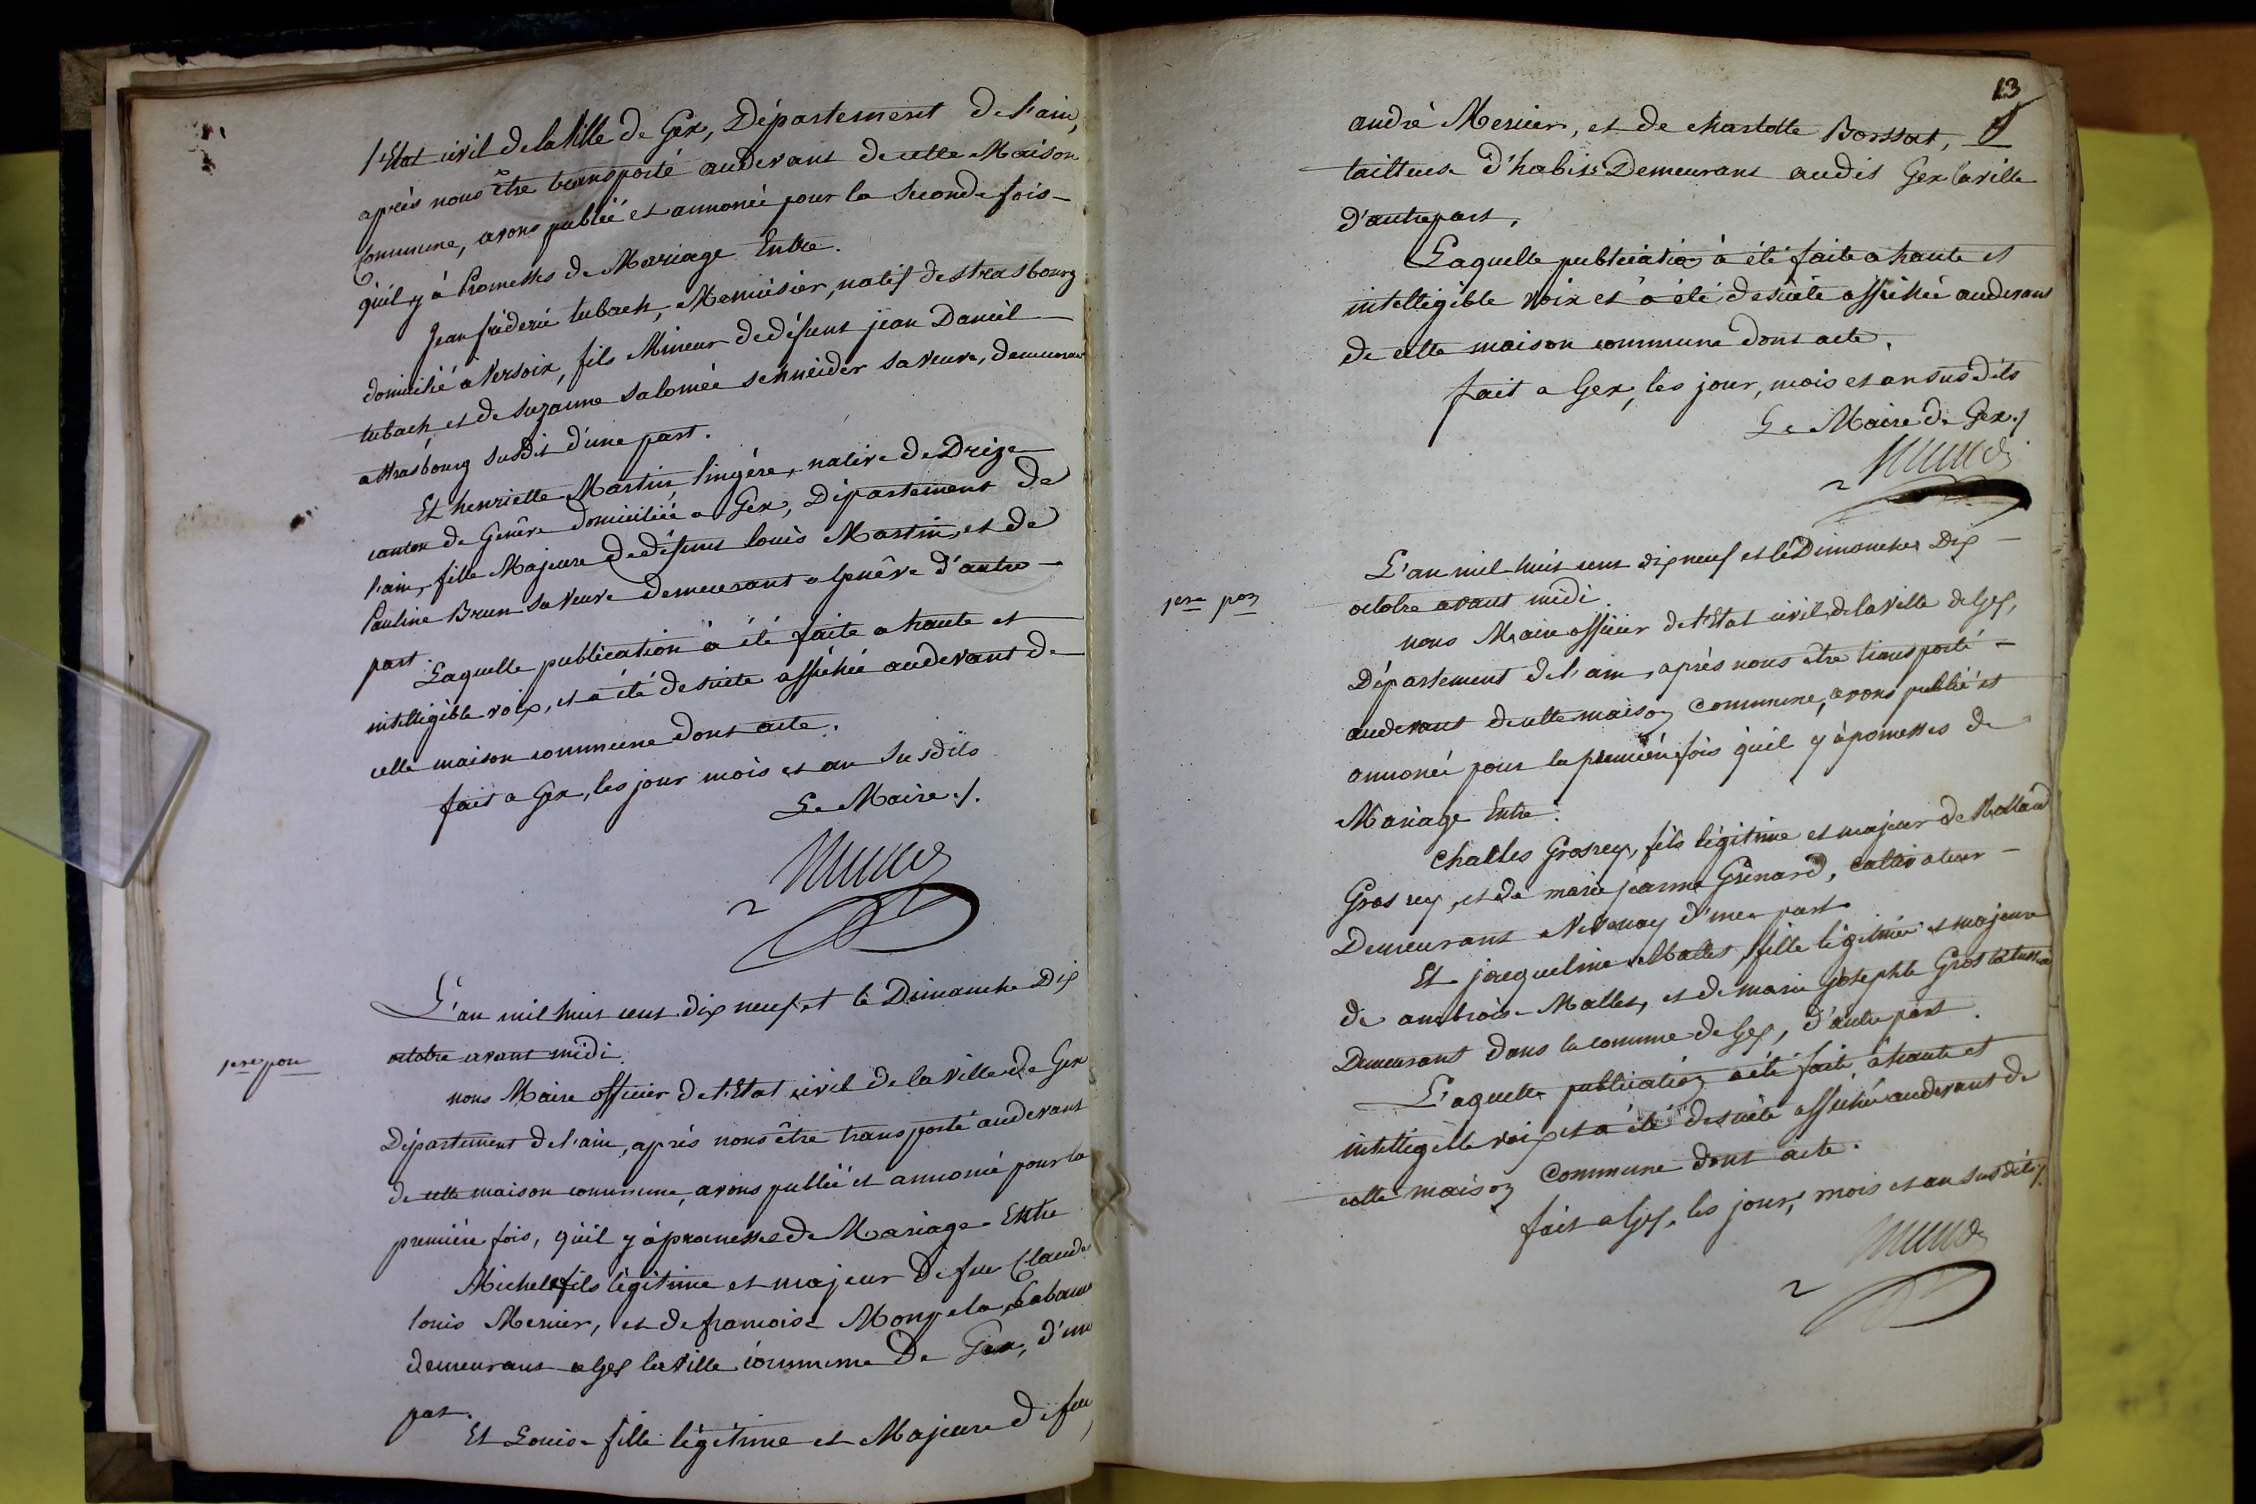 l'Etat civil de la Ville de Gex, Département de l'ain,
après nous être transporté audevant de cette Maison
Commune, avons publié et annoncé pour la seconde fois
qu'il y à Promesses de Mariage Entre.
Jean fréderic tubach, Menuisier, natif de strasbourg
domicilié a Versoix, fils Mineur de défunt jean Daniel
tubach et de suzanne salomée schneider sa veuve, demeurant
a strasbourg susdit d'une part.
Et henriette Martin, lingère, native de Drize
canton de Genêve domiciliée a Gex, Département de
l'ain, fille Majeure de défunt louis Martin, et de
Pauline Brun sa veuve demeurant a Genêve d'autre
part.
Laquelle publication à été faite a haute et
intelligible voix, et à été de suite affichée audevant de
cette maison commune dont acte.
fait a Gex, les jour mois et an susdits
Le Maire ./.
1ere pon
L'an mil huit cent dix neuf et le Dimanche Dix
octobre avant midi.
nous Maire officier de l'Etat civil de la Ville de Gex
Département de l'ain, après nous être transporté audevant
de cette maison commune, avons publié et annoncé pour la
première fois, qu'il y à promesses de Mariage Entre
Michel fils légitime et majeur de feu Claude
louis Mercier, et de francoise
demeurant a Gex la Ville commune De Gex, d'une
part.
Et Louise fille légitime et Majeure de feu
13
andré Mercier, et de charlotte Borssat,
tailleuse d'habits Demeurant audit Gex la ville
D'autre part,
Laquelle publication à été faite a haute et
intelligible voix et à été de suite affichée audevant
de cette maison commune dont acte.
fait a Gex, les jour, mois et an susdits
Le Maire de Gex ./
1ere pon
L'an mil huit cent dix neuf et le Dimanche Dix
octobre avant midi
nous Maire officier de l'Etat civil de la Ville de Gex,
Département de l'ain, après nous être transporté
audevant de cette maison Commune, avons publié et
annoncé pour la première fois qu'il y à promesses de
Mariage Entre.
Charles Grosrey, fils légitime et majeur de
Gros rey, et de marie jeanne Grenard, cultivateur
Demeurant a d'une part.
Et jacqueline Mallet, fille légitime et majeure
de ambroise Mallet, et de marie josephte
Demeurant dans la comune de Gex, d'autre part.
Laquelle publication à été faite à haute et
intelligible voix et à été de suite affichée audevant de
cette maison Commune dont acte.
fait a Gex, les jour, mois et an susdits ./.